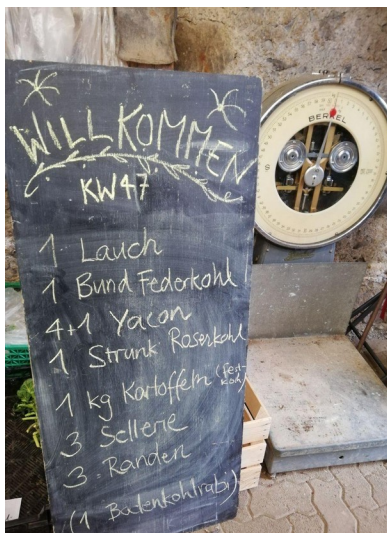 WILLKOMMEN
KW47
1 Lauch
1 Bund Federkohl
4+1 Yacon
1 Strunk Rosenkohl
1 kg Kartoffeln (Fest-
kod)
3 Sellerie
3 Randen
(1 Bodenkohlrabi)
BERKEL